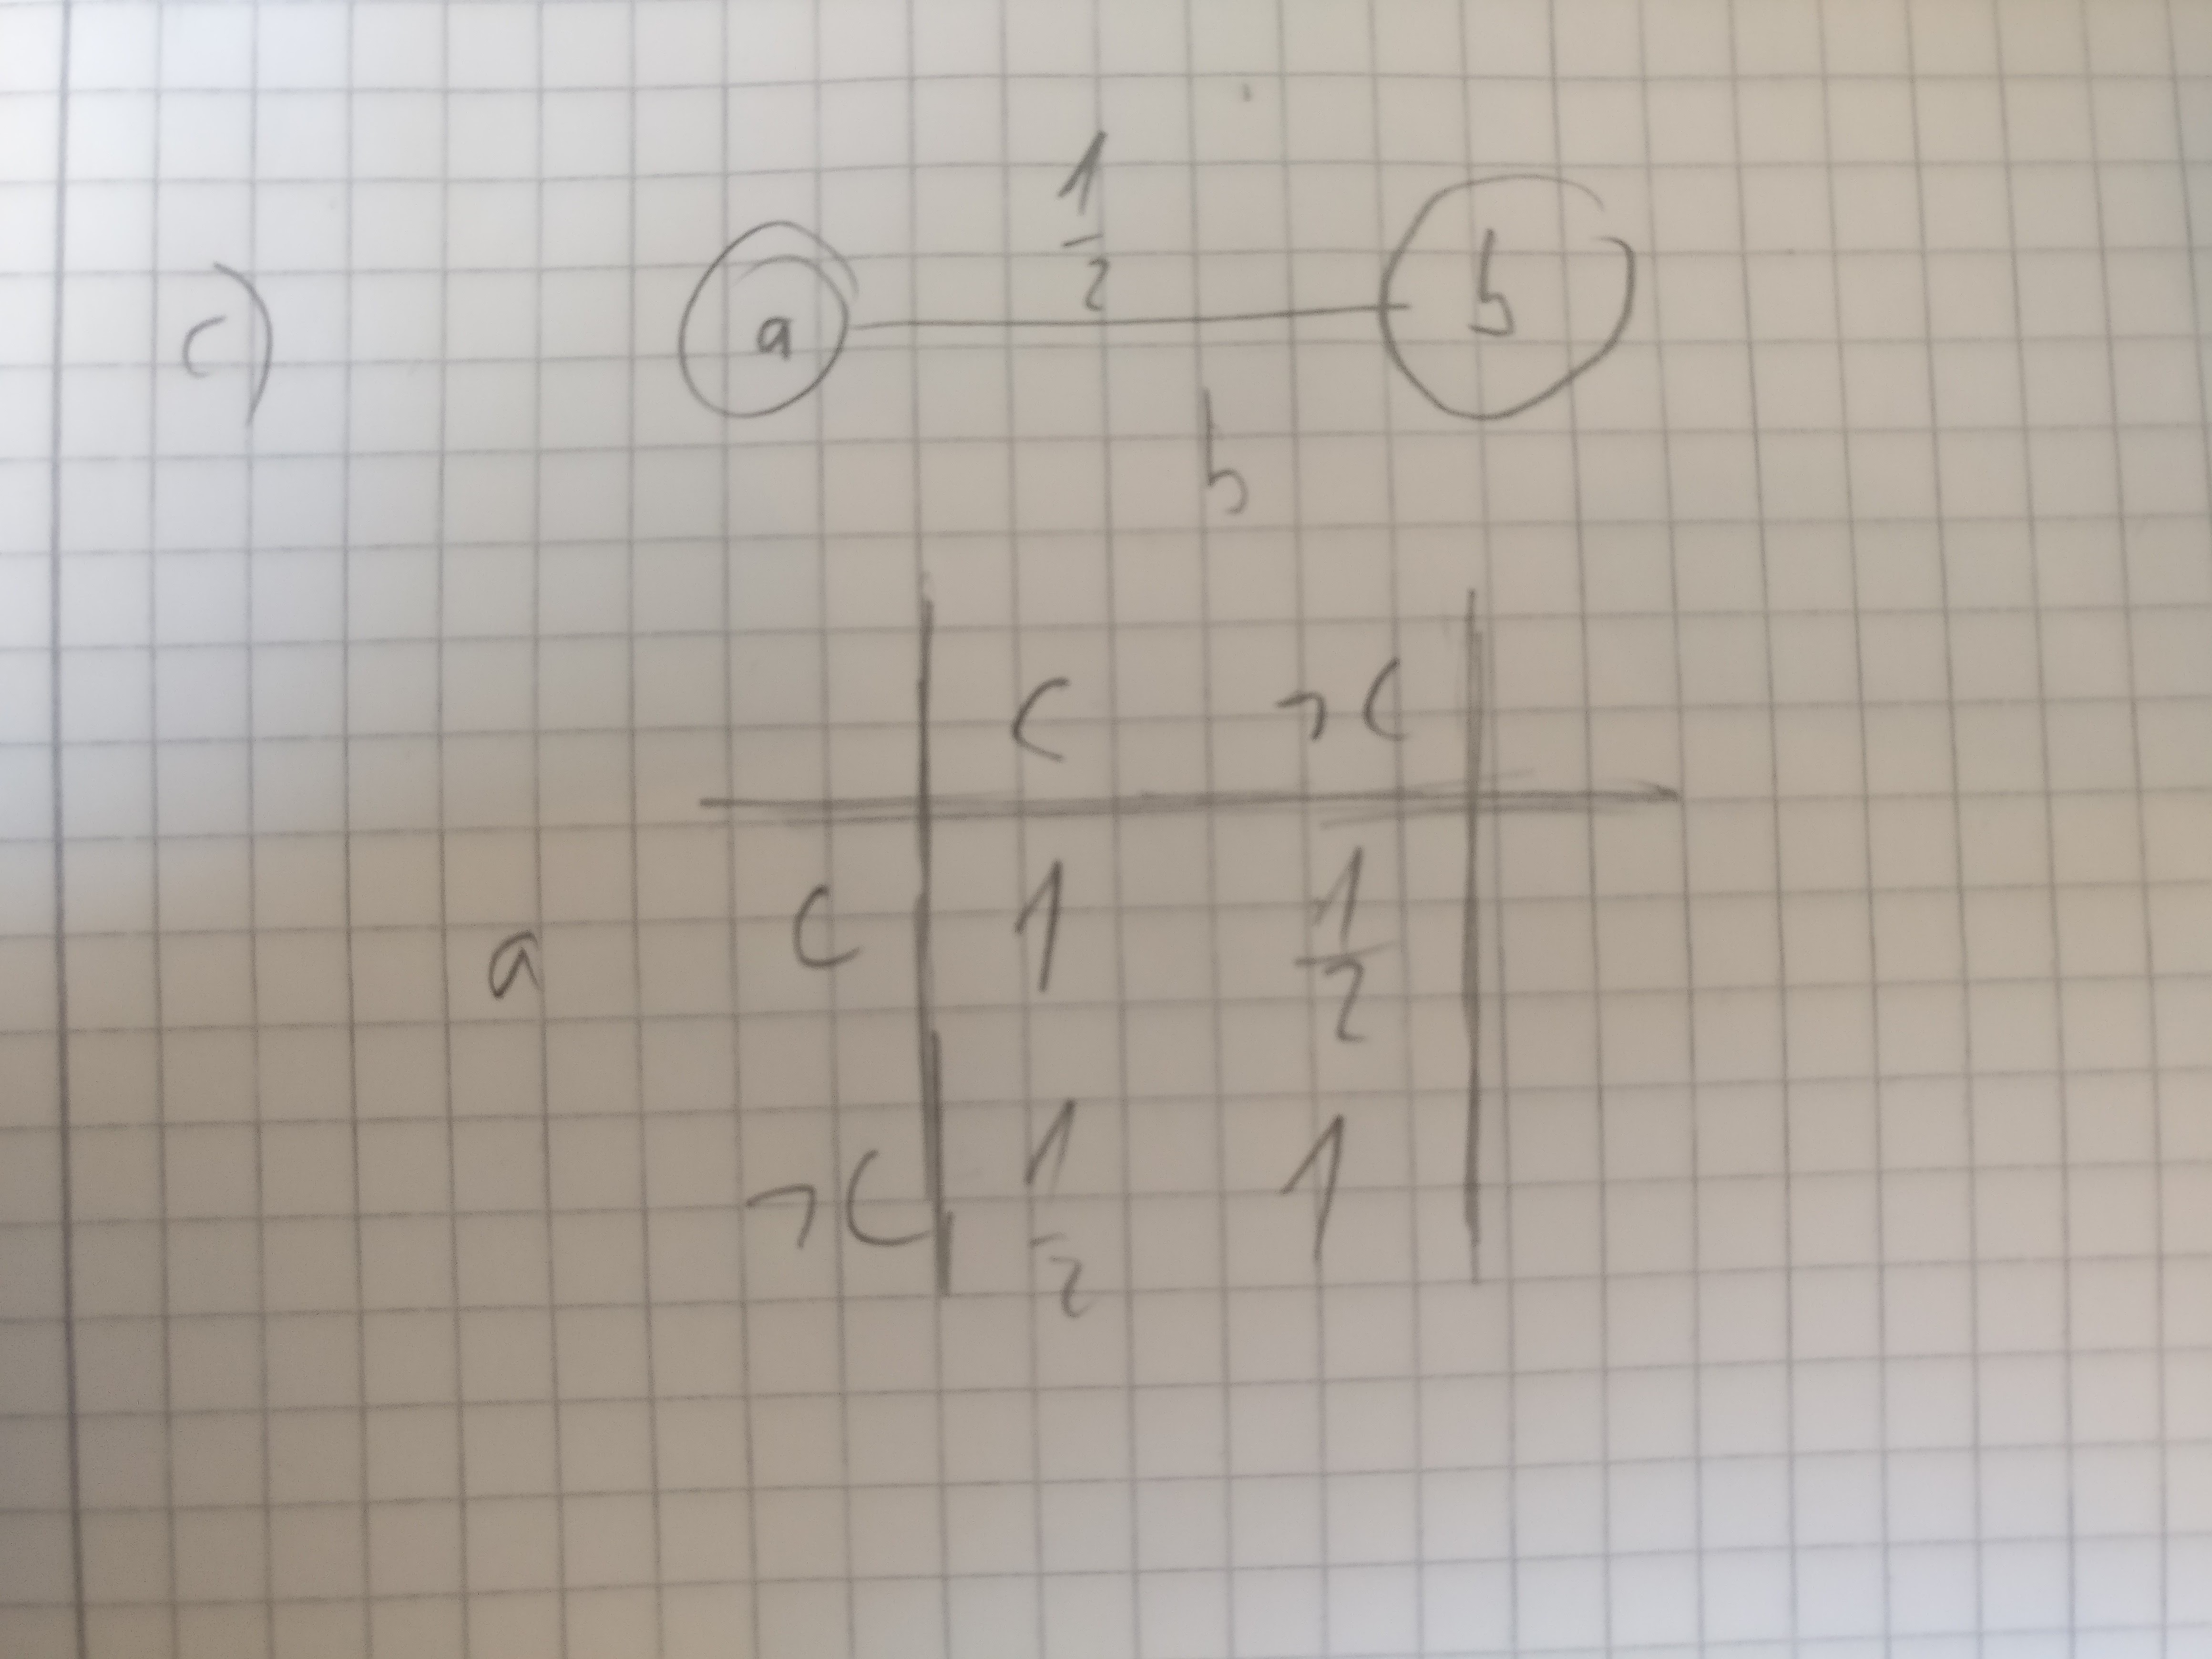 c) a 1/2 b
b
C ¬C
a C 1 1/2
¬C 1/2 1